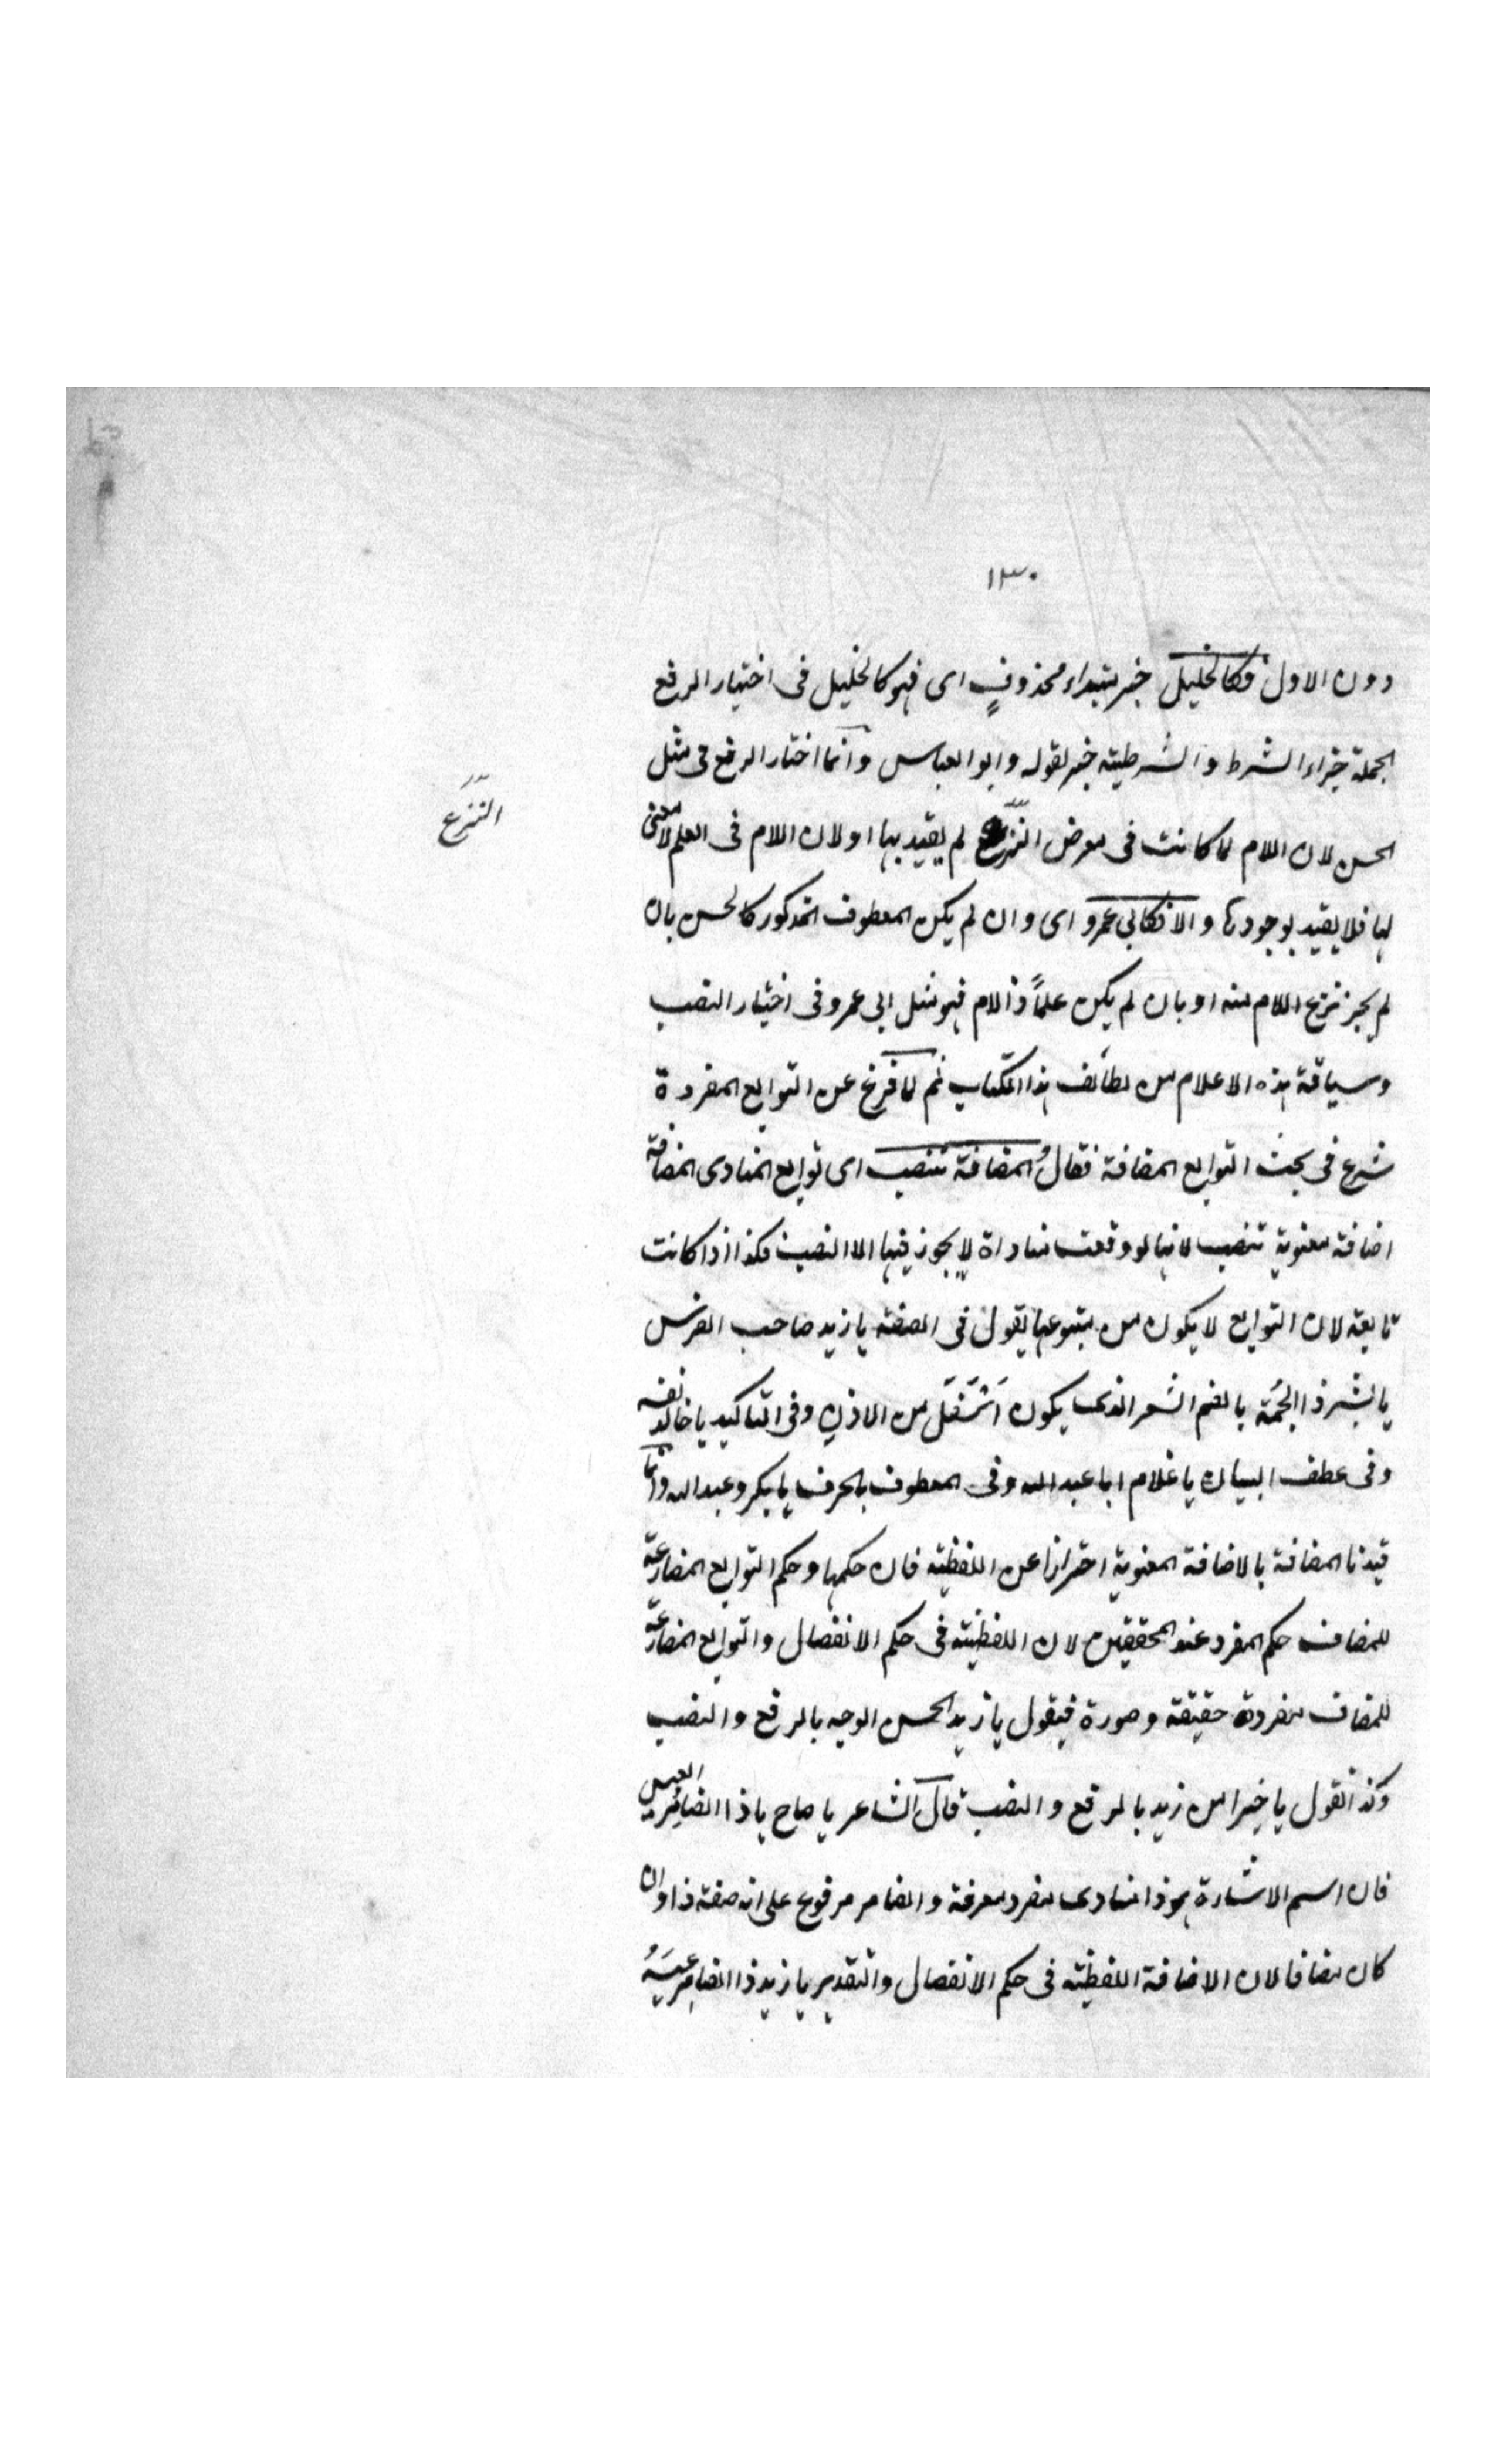 ١٣٠
دون الاول فكالخليل خبر مبتداء محذوفٍ اى فهو كالخليل فى اختيار الرفع
الجملة جزاء الشرط والشرطية خبر لقوله وابو العباس وانما اختار الرفع فى مثل
الحسن لان اللام لما كانت فى معرض النزع لم يقيد بها او لان اللام فى العلم لا معنى
النزع
لها فلا يقيد بوجودها والا فكابي عمرو اى وان لم يكن المعطوف المذكور كالحسن بان
لم يجز نزع اللام منه او بان لم يكن علماً ذا لام فهو مثل ابى عمرو فى اختيار النصب
وسياقة هذه الاعلام من لطائف هذا الكتاب ثم لما فرغ عن التوابع المفردة
شرع فى بحث التوابع المضافة فقال والمضافة تنصب اى توابع المنادى المضافة
اضافة معنوية تنصب لانها لو وقعت مناداة لا يجوز فيها الا النصب فكذا اذا كانت
تابعة لان التوابع لا يكون من متبوعها يقول فى الصفة يا زيد صاحب الفرس
يا بشر ذا الجُمَّة بالضم الشعر الذى يكون اسفل من الاذن وفى التاكيد يا خالد نفسه
وفى عطف البيان يا غلام ابا عبد الله وفى المعطوف بالحرف يا بكر وعبد الله وانما
قيدنا المضافة بالاضافة المعنوية احترازا عن اللفظية فان حكمها وحكم التوابع المضارعة
للمضاف حكم المفرد عند المحققين لان اللفظية فى حكم الانفصال والتوابع المضارعة
للمضاف مفردة حقيقة وصورة فيقول يا زيد الحسن الوجه بالرفع والنصب
وكذا تقول يا خيرا من زيد بالرفع والنصب قال الشاعر يا صاح يا ذا الضامر العيس
فان اسم الاشارة هو ذا منادى مفرد معرفة والضامر مرفوع على انه صفة ذا وان
كان مضافا لان الاضافة اللفظية فى حكم الانفصال والتقدير يا زيد ذا الضامر عيسه